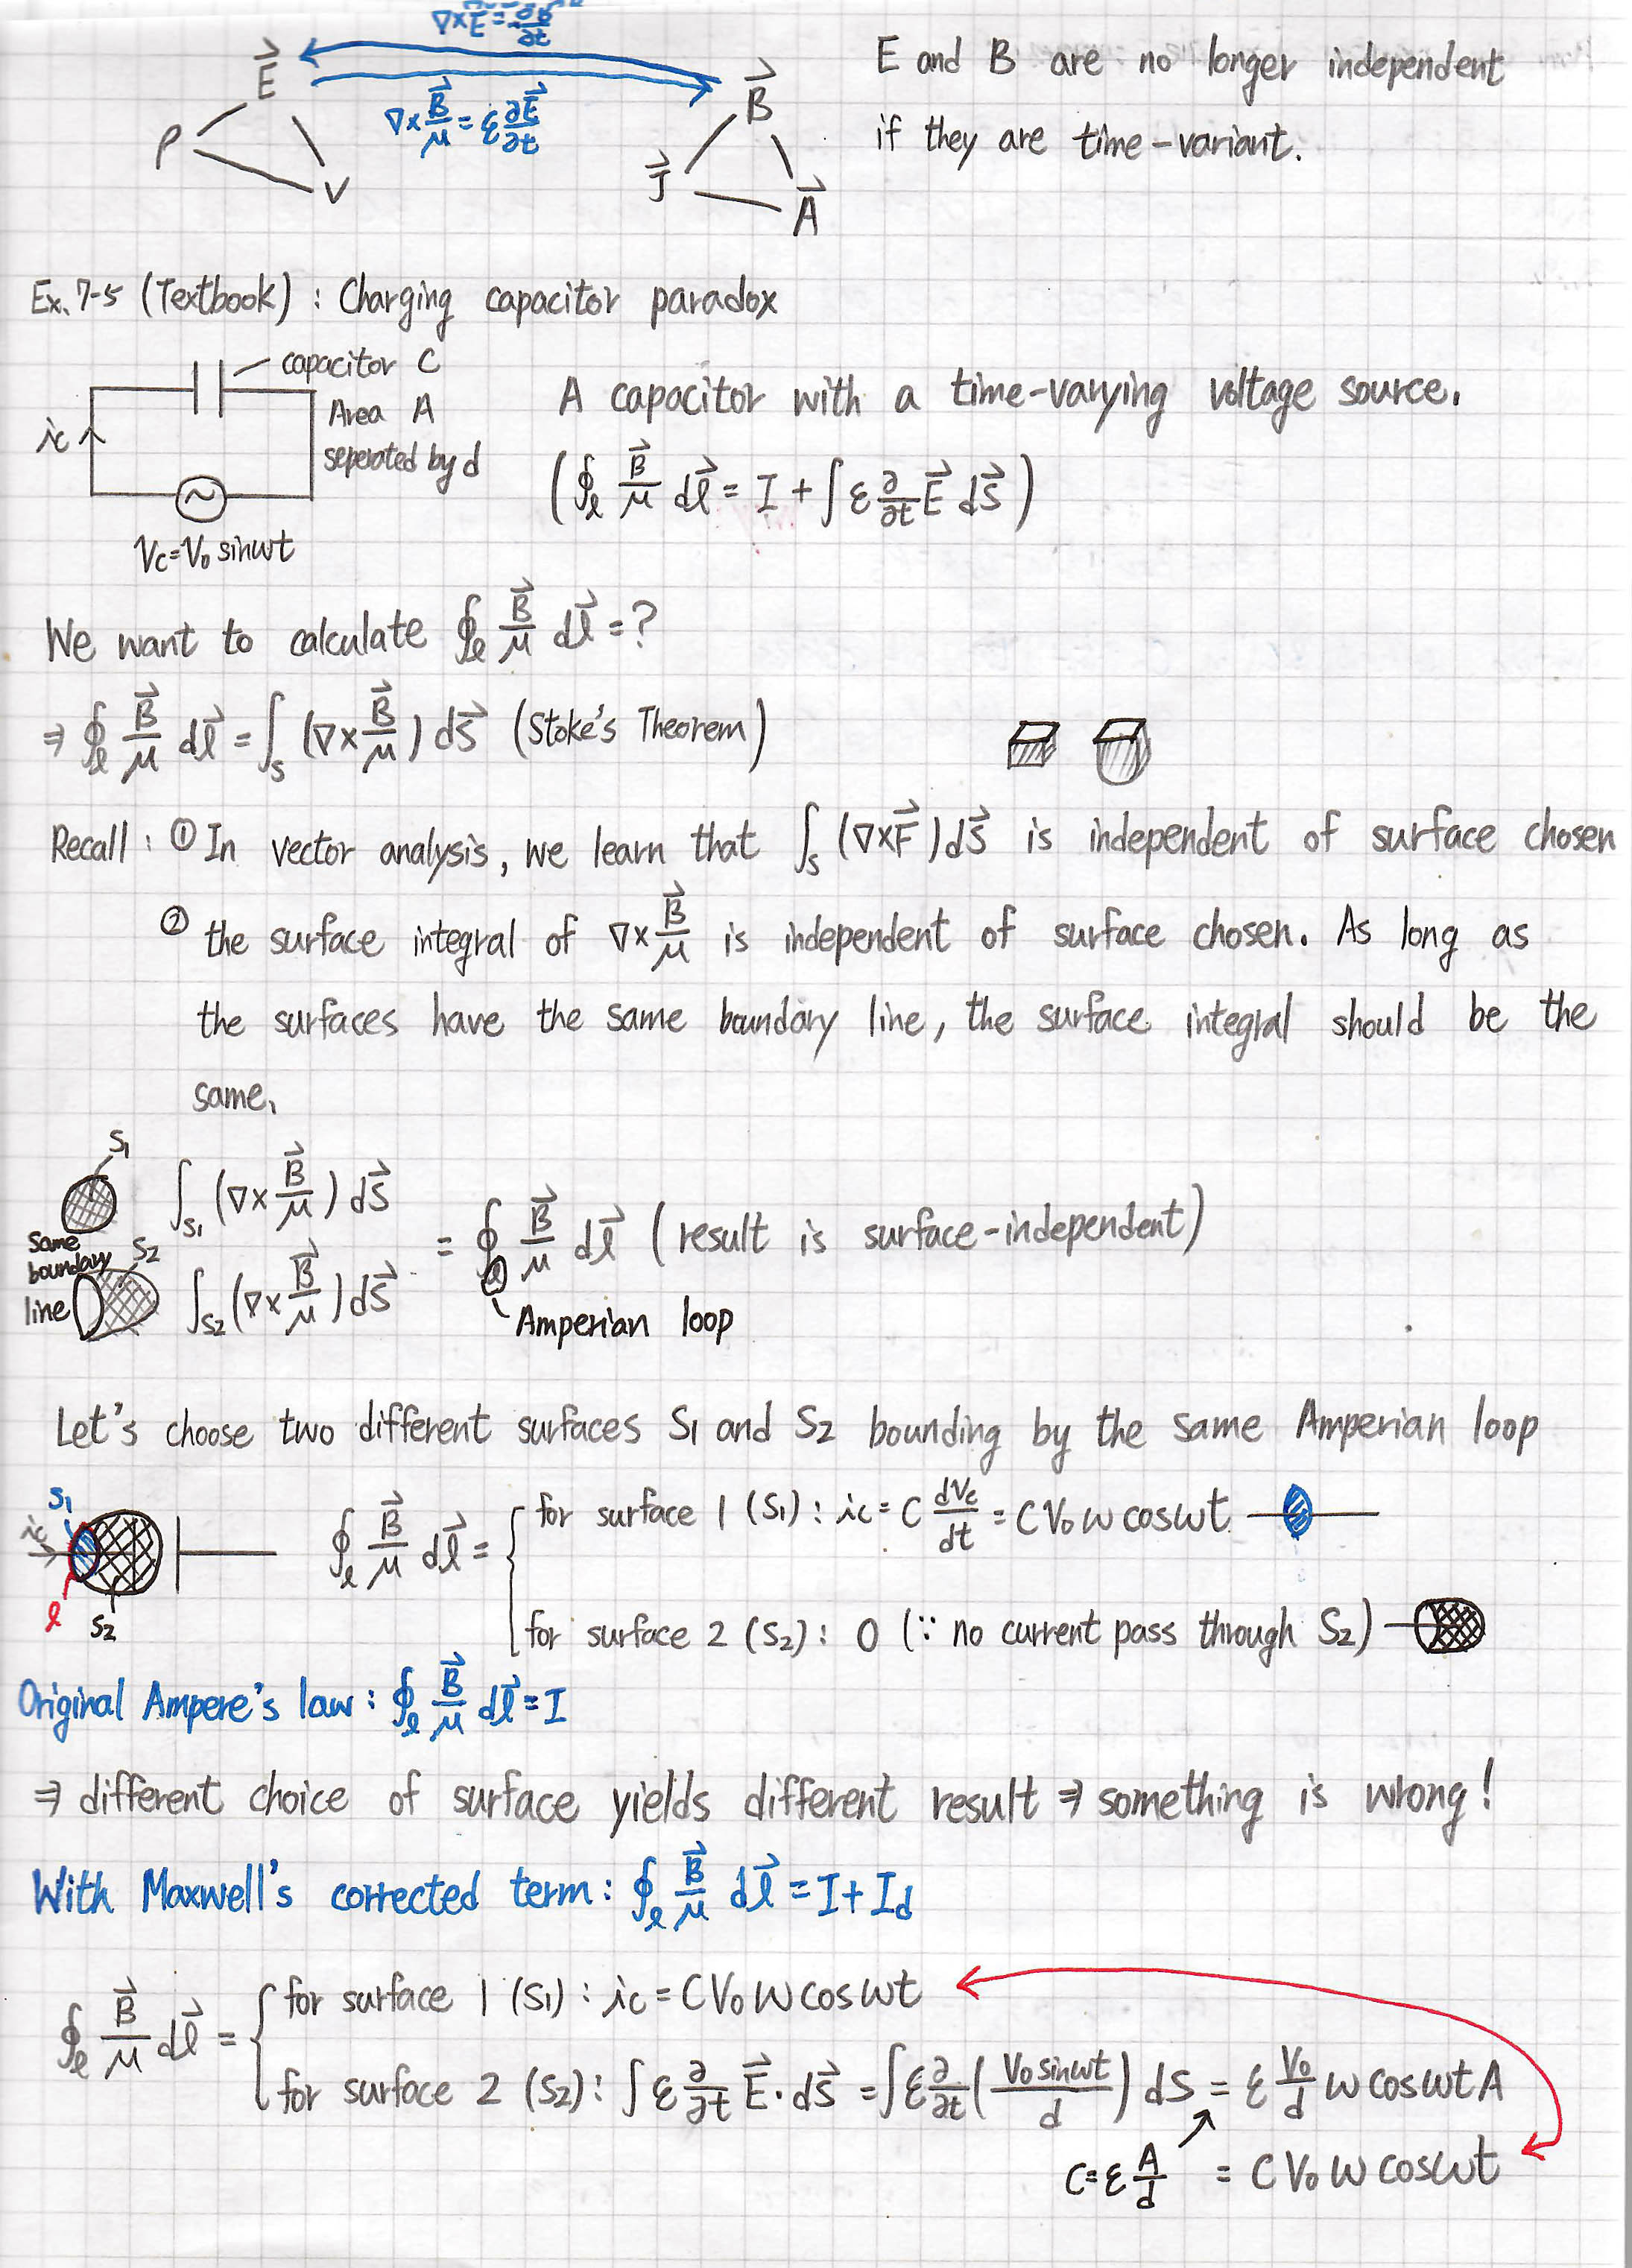 ∇×E⃗ = -∂B⃗/∂t
E⃗
B⃗
E and B are no longer independent
∇×B⃗/μ = ε ∂E⃗/∂t
if they are time-variant.
ρ
V
J⃗
A⃗
Ex. 7-5 (Textbook) : Charging capacitor paradox
capacitor C
Area A
seperated by d
ic
Vc=V₀ sinωt
A capacitor with a time-varying voltage source.
(∮ₗ B⃗/μ dl⃗ = I + ∫ε ∂/∂t E⃗ ds⃗)
We want to calculate ∮ₗ B⃗/μ dl⃗ = ?
⇒ ∮ₗ B⃗/μ dl⃗ = ∫ₛ (∇×B⃗/μ) ds⃗ (Stoke's Theorem)
Recall : ① In vector analysis, we learn that ∫ₛ (∇×F⃗) ds⃗ is independent of surface chosen
② the surface integral of ∇×B⃗/μ is independent of surface chosen. As long as
the surfaces have the same boundary line, the surface integral should be the
same.
S₁
∫S₁ (∇×B⃗/μ) ds⃗
same
boundary
line
S₂
∫S₂ (∇×B⃗/μ) ds⃗
= ∮ₗ B⃗/μ dl⃗ (result is surface-independent)
Amperian loop
Let's choose two different surfaces S₁ and S₂ bounding by the same Amperian loop
S₁
ic
l
S₂
∮ₗ B⃗/μ dl⃗ =
for surface 1 (S₁) : ic = C dVc/dt = CV₀ω cosωt
for surface 2 (S₂) : 0 (∵ no current pass through S₂)
Original Ampere's law : ∮ₗ B⃗/μ dl⃗ = I
⇒ different choice of surface yields different result ⇒ something is wrong!
With Maxwell's corrected term : ∮ₗ B⃗/μ dl⃗ = I + Id
∮ₗ B⃗/μ dl⃗ =
for surface 1 (S₁) : ic = CV₀ω cosωt
for surface 2 (S₂) : ∫ε ∂/∂t E⃗·ds⃗ = ∫ε ∂/∂t (V₀ sinωt/d) ds = ε V₀/d ω cosωt A
C = ε A/d
= CV₀ω cosωt